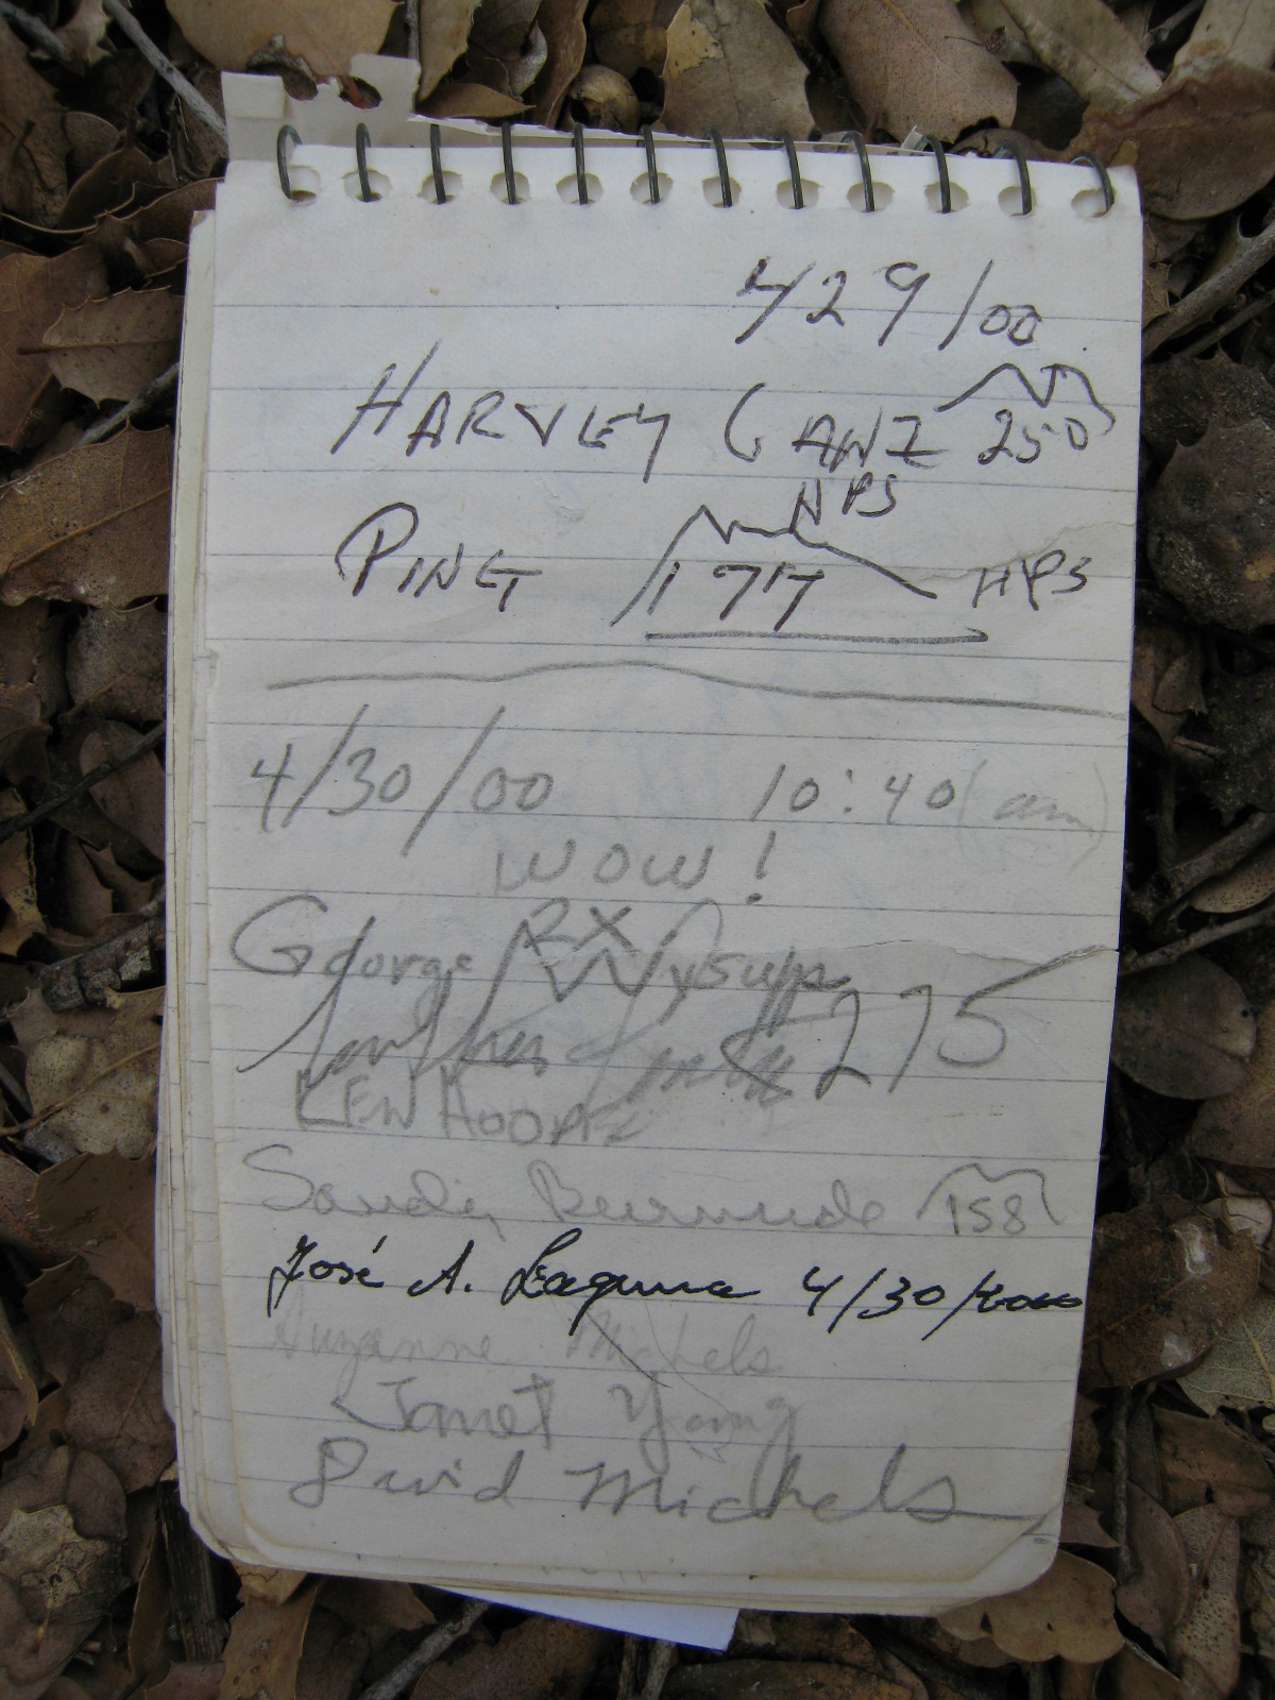 429/00
HARVEY GANZ 250
HPS
PING 177 HPS
4/30/00 10:40 (am)
WOW!
RX
George Wysup
275
KEN HOOPE
Sandi Bermude 158
José A. Laguna 4/30/2000
Suzanne Michels
Janet Yang
David Michels